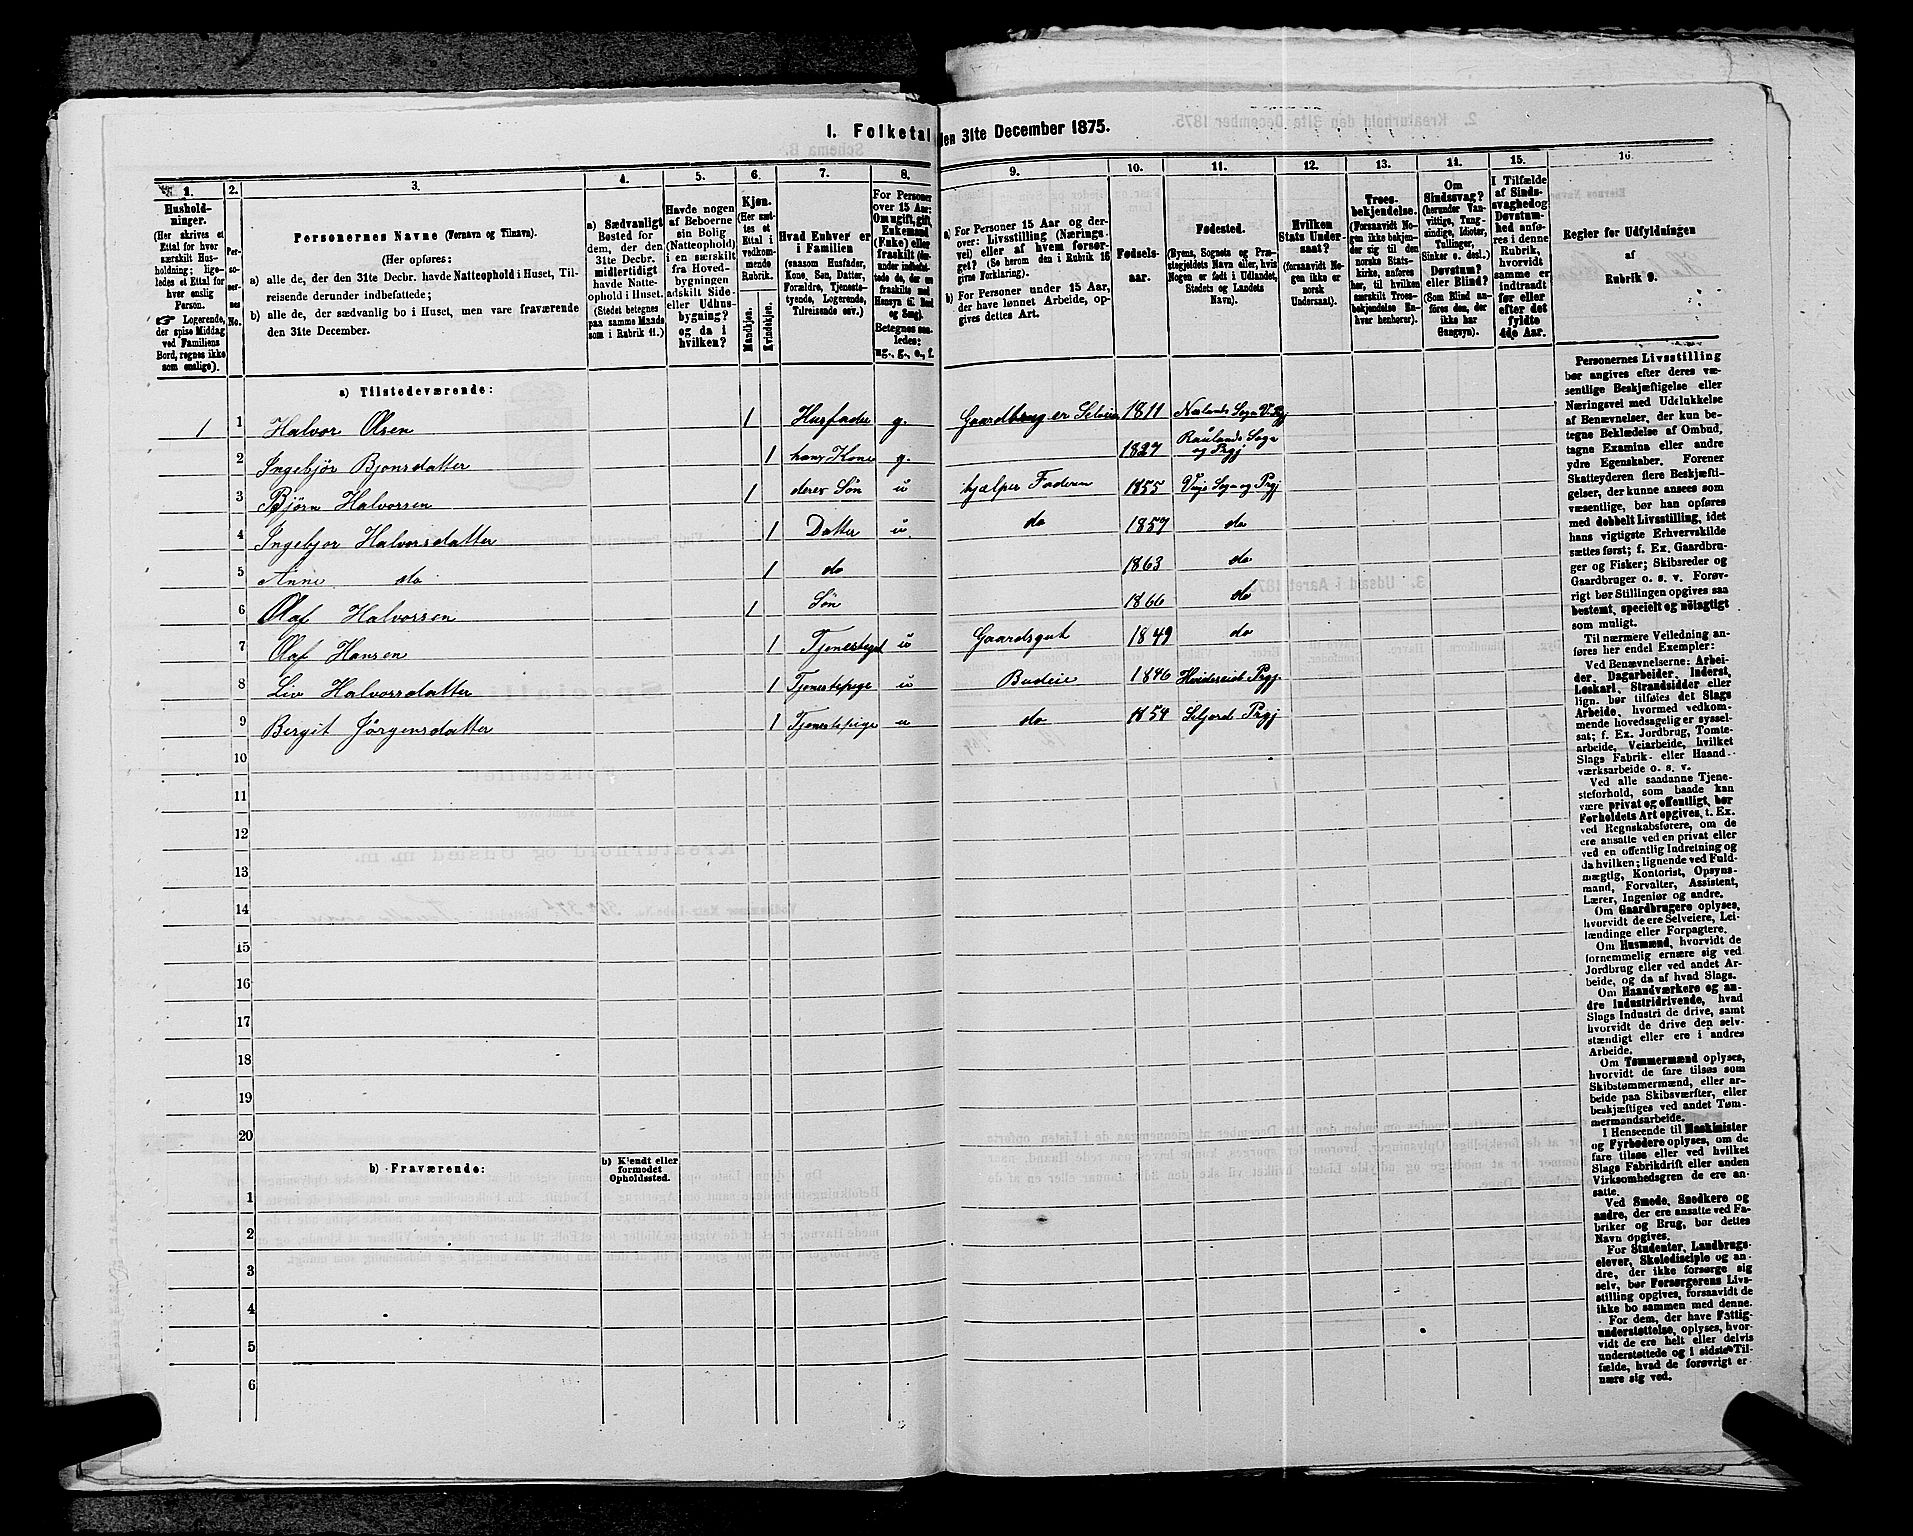 1. Folketal den 31te December 1875.
1.
Husholdninger.
(Her skrives et
Ettal for hver
særskilt Husholdning; ligeledes
et Ettal for
hver enslig
Person.
☞ Logerende,
der spise Middag
ved Familiens
Bord, regnes ikke
som enslige).
2.
Personernes No.
3.
Personernes Navne (Fornavn og Tilnavn).
(Her opføres:
a) alle de, der den 31te Decbr. havde Natteophold i Huset, Tilreisende derunder indbefattede;
b) alle de, der sædvanlig bo i Huset, men vare fraværende
den 31te December.
4.
a) Sædvanligt
Bosted for
dem, der den
31te Decbr.
midlertidigt
havde Natteophold i Huset.
(Stedet betegnes
paa samme Maade
som i Rubrik 11.)
5.
Havde nogen
af Beboerne
sin Bolig
(Natteophold)
i en særskilt
fra Hovedbygningen
adskilt Side-
eller Udhusbygning?
og da i
hvilken?
6.
Kjøn.
(Her sættes et
Ettal i
vedkommende
Rubrik.
Mandkjøn.
Kvindekjøn.
7.
Hvad Enhver er
i Familien
(saasom Husfader,
Kone, Søn, Datter,
Forældre, Tjenestetyende, Logerende,
Tilreisende osv.)
8.
For Personer
over 15 Aar:
Om ugift, gift
Enkemand
(Enke) eller
fraskilt
Betegnes saaledes:
ug., g., e., f.
9.
a) For Personer 15 Aar og derover: Livsstilling (Næringsvei) eller af hvem forsørget? (Se herom den i Rubrik 16
givne Forklaring).
b) For Personer under 15 Aar,
der have lønnet Arbeide, opgives dettes Art.
10.
Fødselsaar.
11.
Fødested.
(Byens, Sognets og Præstegjeldets Navn eller, hvis
Nogen er født i Udlandet,
Stedets og Landets
Navn).
12.
Hvilken
Stats Undersaat?
(forsaavidt Nogen ikke er
norsk
Undersaat).
13.
Troesbekjendelse.
(Forsaavidt Nogen ikke bekjender sig til den
norske Statskirke, anføres
her, til hvilken
særskilt Troesbekjendelse Enhver henhører).
14.
Om
Sindssvag?
(herunder Vanvittige, Tungsindige, Idioter,
Tullinger,
Sinker o. desl.).
Døvstum?
eller Blind?
(Som Blind anføres den, der
ikke har
Gangsyn).
15.
I Tilfælde
af Sindssvaghed og
Døvstumhed anføres i denne
Rubrik,
hvorvidt
samme er
indtraadt
før eller
efter det
fyldte
4de Aar.
16.
Regler for Udfyldningen
af
Rubrik 9.
a) Tilstedeværende:
1 1 Halvor Olsen 1 Husfader g. Gaardbruger Selveier 1811 Næslands Sogn V. Prgj
2 Ingebjør Bjonsdatter 1 hans Kone g. 1827 Raulands Sogn og Prgj
3 Bjørn Halvorsen 1 deres Søn u hjælper Faderen 1855 Vinje Sogn og Prgj
4 Ingebjor Halvorsdatter 1 Datter u do 1857 do
5 Anne do 1 do 1863 do
6 Olaf Halvorsen 1 Søn 1866 do
7 Olaf Hansen 1 Tjenestegut u Gaardsgut 1849 do
8 Liv Halvorsdatter 1 Tjenestepige u Budeie 1846 Hvideseid Prgj
9 Bergit Jørgensdatter 1 Tjenestepige u do 1854 Seljord Prgj
10
11
12
13
14
15
16
17
18
19
20
b) Fraværende:
b) Kjendt eller
formodet
Opholdssted.
1
2
3
4
5
6
Personernes Livsstilling
bør angives efter deres væsentlige Beskjæftigelse eller
Næringsvei med Udelukkelse
af Benævnelser, der kun betegne Beklædelse af Ombud,
tagne Examina eller andre
ydre Egenskaber. Forener
Skatteyderen flere Beskjæftigelser, der kunne ansees som
væsentlige, bør han opføres
med dobbelt Livsstilling, idet
hans vigtigste Erhvervskilde
sættes først; f. Ex. Gaardbruger og Fisker; Skibsreder og
Gaardbruger o. s. v. Forøvrigt bør Stillingen opgives saa
bestemt, specielt og nöiagtigt
som muligt.
Til nærmere Veiledning anføres her endel Exempler:
Ved Benævnelserne: Arbeider, Dagarbeider, Inderst,
Løskarl, Strandsidder eller
lign. bør tilføies det Slags
Arbeide, hvormed vedkommende hovedsagelig er sysselsat; f. Ex. Jordbrug, Tomtearbeide, Veiarbeide, hvilket
Slags Fabrik- eller Haandværksarbeide o. s. v.
Ved alle saadanne Tjenesteforhold, som baade kan
være privat og offentligt, bør
Forholdets Art opgives, f. Ex.
ved Regnskabsførere, om de
ere ansatte ved en privat eller
ved en offentlig Indretning og
da hvilken; lignende ved Fuldmægtig, Kontorist, Opsynsmand, Forvalter, Assistent,
Lærer, Ingeniør og andre.
Om Gaardbrugere oplyses,
hvorvidt de ere Selveiere, Leilændinge eller Forpagtere.
Om Husmænd, hvorvidt de
fornemmelig ernære sig ved
Jordbrug eller ved andet Arbeide, og da af hvad Slags.
Om Haandværkere og andre Industridrivende, hvad
Slags Industri de drive, samt
hvorvidt de drive den selvstændigt eller ere i andres
Arbeide.
Om Tømmermænd oplyses,
hvorvidt de fare tilsøs som
Skibstømmermænd, eller arbeide paa Skibsværfter, eller
beskjæftiges ved andet Tømmermandsarbeide.
I Henseende til Maskinister
og Fyrbødere oplyses, om de
fare tilsøs eller ved hvilket
Slags Fabrikdrift eller anden
Virksomhedsgren de ere ansatte.
Ved Smede, Snedkere og
andre, der ere ansatte ved Fabriker og Brug, bør dettes
Navn opgives.
For Studenter, Landbrugselever, Skoledisciple og andre, der ikke forsørge sig
selv, bør Forsørgerens Livsstilling opgives, forsaavidt de
ikke bo sammen med denne.
For dem, der have Fattigunderstøttelse, oplyses, hvorvidt de ere helt eller delvis
understøttede og i sidste Tilfælde, hvad de forøvrigt ernære sig ved.